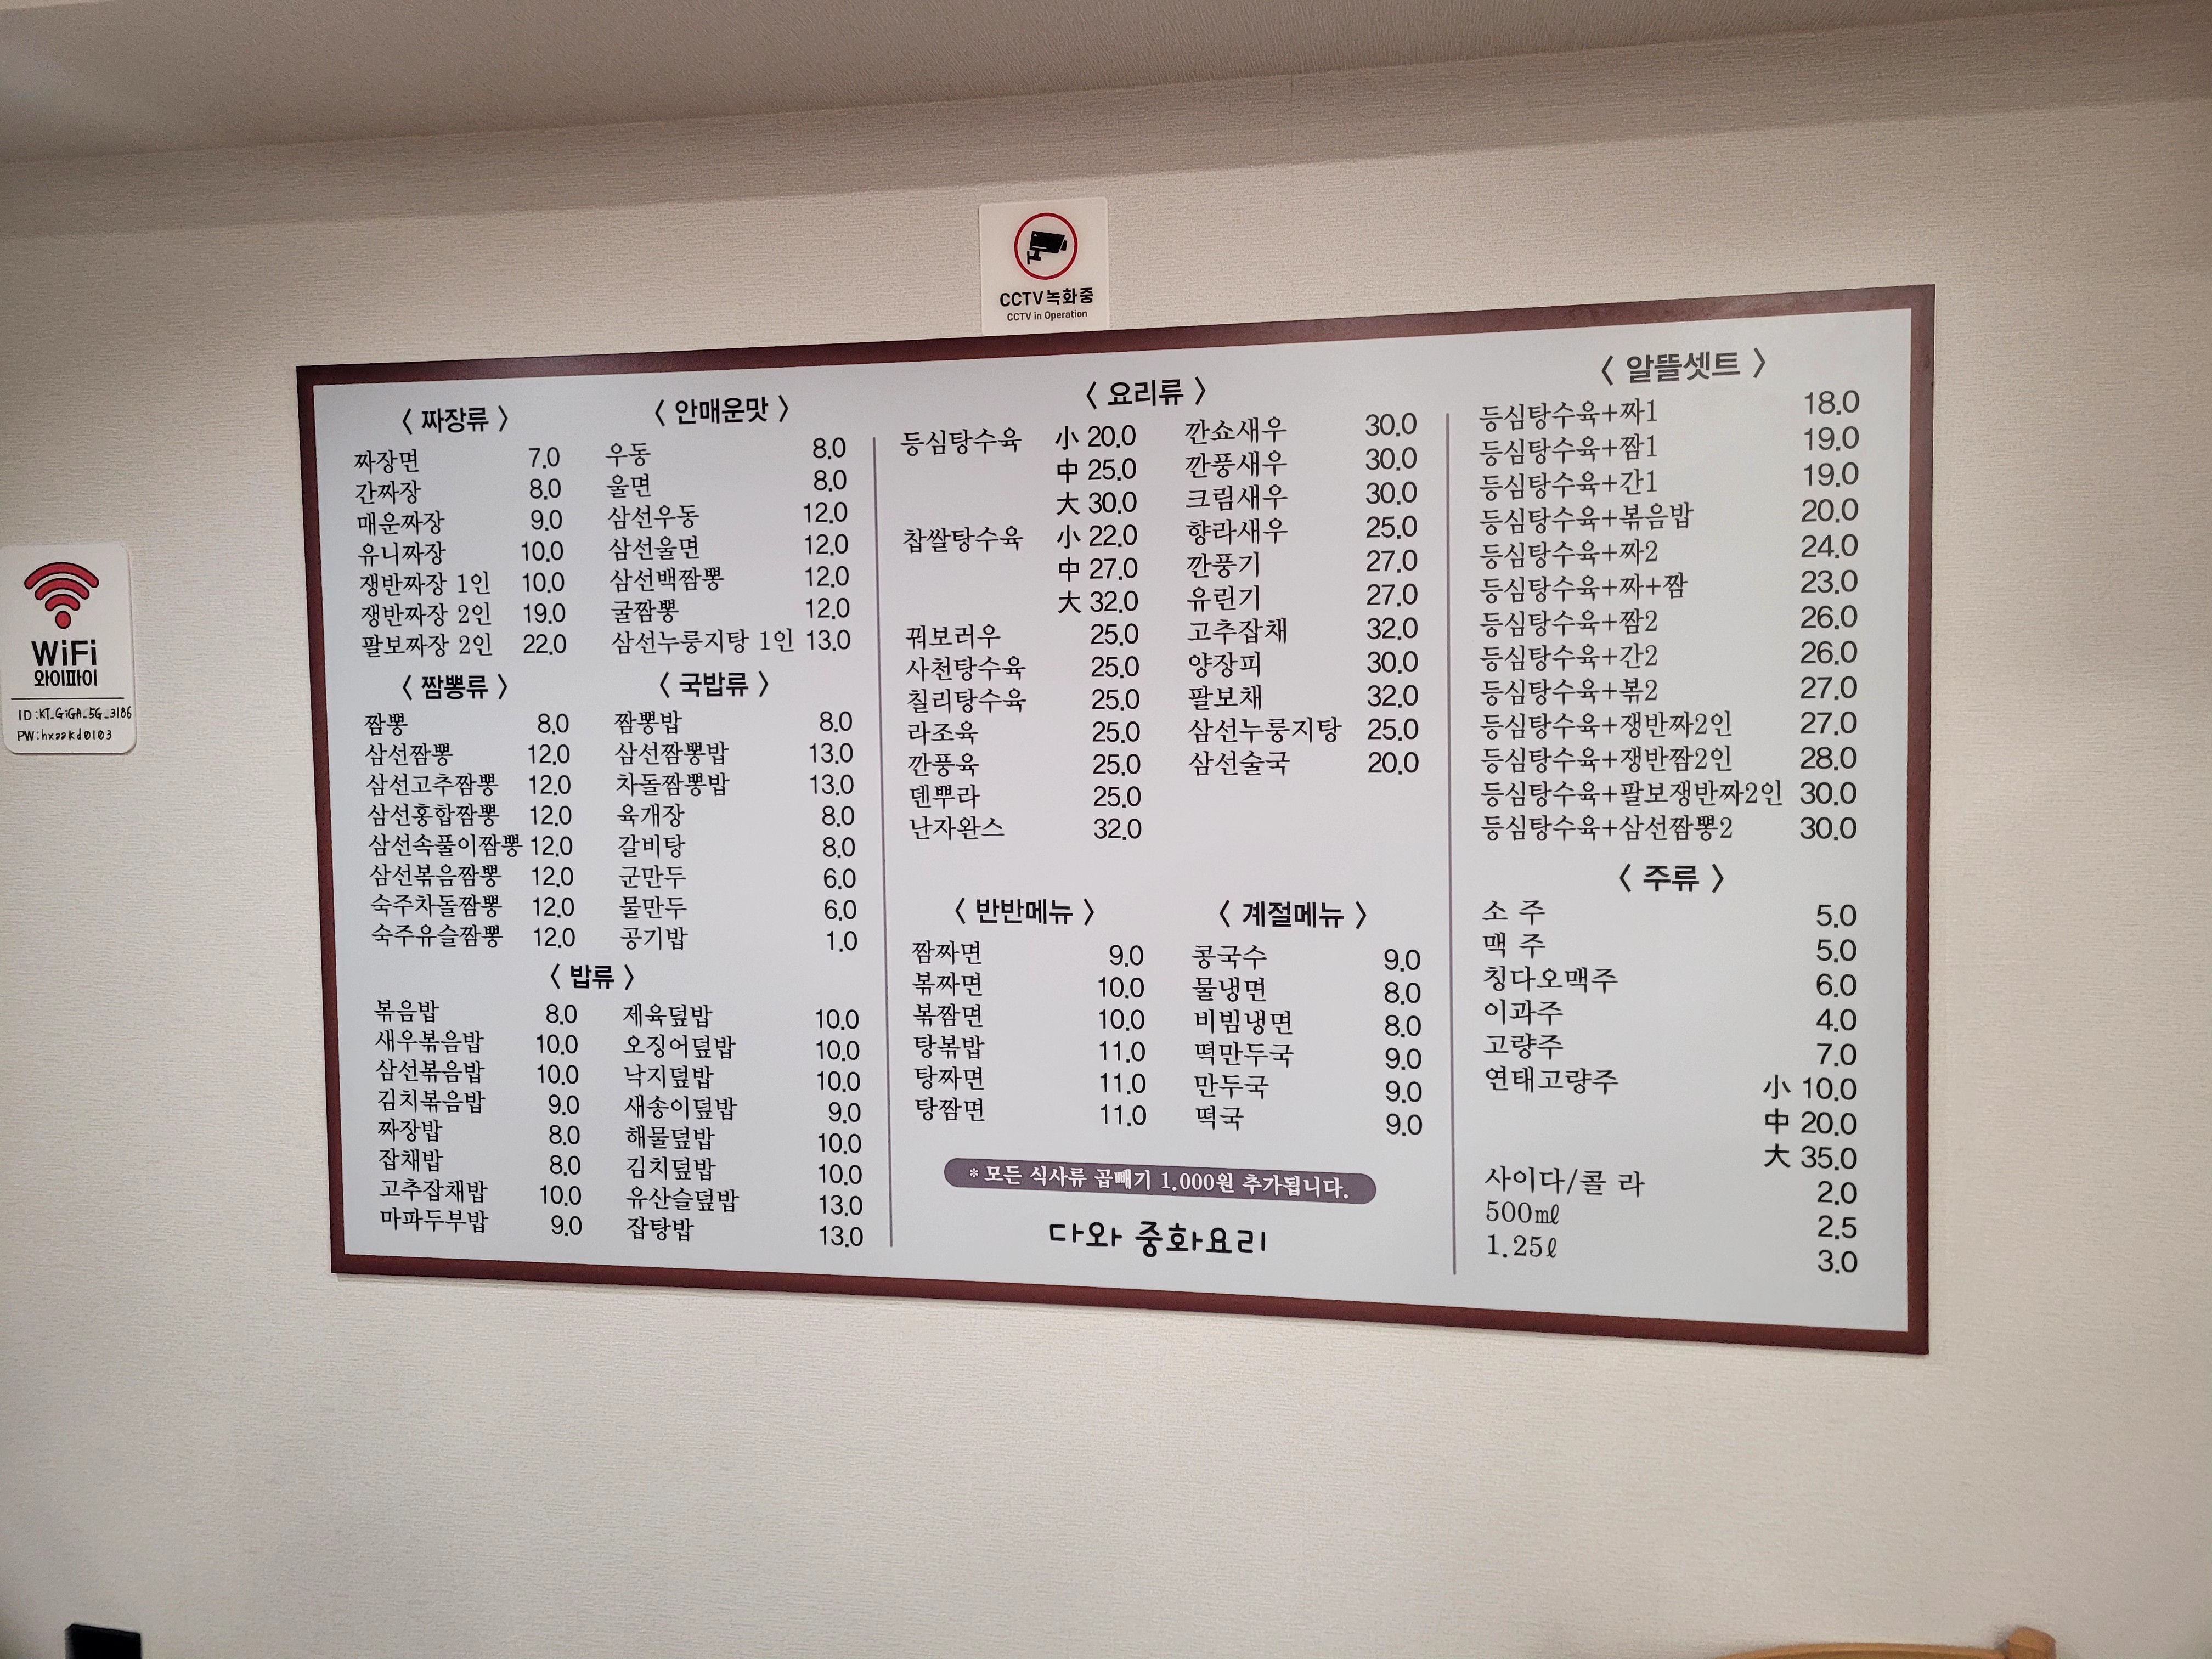 CCTV녹화중
CCTV in Operation
WiFi
와이파이
ID:KT_GiGA_5G_3186
PW:hxaakd0103
〈 짜장류 〉
짜장면 7.0
간짜장 8.0
매운짜장 9.0
유니짜장 10.0
쟁반짜장 1인 10.0
쟁반짜장 2인 19.0
팔보짜장 2인 22.0
〈 짬뽕류 〉
짬뽕 8.0
삼선짬뽕 12.0
삼선고추짬뽕 12.0
삼선홍합짬뽕 12.0
삼선속풀이짬뽕 12.0
삼선볶음짬뽕 12.0
숙주차돌짬뽕 12.0
숙주유슬짬뽕 12.0
〈 안매운맛 〉
우동 8.0
울면 8.0
삼선우동 12.0
삼선울면 12.0
삼선백짬뽕 12.0
굴짬뽕 12.0
삼선누룽지탕 1인 13.0
〈 국밥류 〉
짬뽕밥 8.0
삼선짬뽕밥 13.0
차돌짬뽕밥 13.0
육개장 8.0
갈비탕 8.0
군만두 6.0
물만두 6.0
공기밥 1.0
〈 밥류 〉
볶음밥 8.0
새우볶음밥 10.0
삼선볶음밥 10.0
김치볶음밥 9.0
짜장밥 8.0
잡채밥 8.0
고추잡채밥 10.0
마파두부밥 9.0
제육덮밥 10.0
오징어덮밥 10.0
낙지덮밥 10.0
새송이덮밥 9.0
해물덮밥 10.0
김치덮밥 10.0
유산슬덮밥 13.0
잡탕밥 13.0
〈 요리류 〉
등심탕수육 小 20.0
中 25.0
大 30.0
찹쌀탕수육 小 22.0
中 27.0
大 32.0
꿔보러우 25.0
사천탕수육 25.0
칠리탕수육 25.0
라조육 25.0
깐풍육 25.0
덴뿌라 25.0
난자완스 32.0
깐쇼새우 30.0
깐풍새우 30.0
크림새우 30.0
향라새우 25.0
깐풍기 27.0
유린기 27.0
고추잡채 32.0
양장피 30.0
팔보채 32.0
삼선누룽지탕 25.0
삼선술국 20.0
〈 반반메뉴 〉
짬짜면 9.0
볶짜면 10.0
볶짬면 10.0
탕볶밥 11.0
탕짜면 11.0
탕짬면 11.0
〈 계절메뉴 〉
콩국수 9.0
물냉면 8.0
비빔냉면 8.0
떡만두국 9.0
만두국 9.0
떡국 9.0
* 모든 식사류 곱빼기 1.000원 추가됩니다.
다와 중화요리
〈 알뜰셋트 〉
등심탕수육+짜1 18.0
등심탕수육+짬1 19.0
등심탕수육+간1 19.0
등심탕수육+볶음밥 20.0
등심탕수육+짜2 24.0
등심탕수육+짜+짬 23.0
등심탕수육+짬2 26.0
등심탕수육+간2 26.0
등심탕수육+볶2 27.0
등심탕수육+쟁반짜2인 27.0
등심탕수육+쟁반짬2인 28.0
등심탕수육+팔보쟁반짜2인 30.0
등심탕수육+삼선짬뽕2 30.0
〈 주류 〉
소 주 5.0
맥 주 5.0
칭다오맥주 6.0
이과주 4.0
고량주 7.0
연태고량주 小 10.0
中 20.0
大 35.0
사이다/콜 라 2.0
500㎖ 2.5
1.25ℓ 3.0